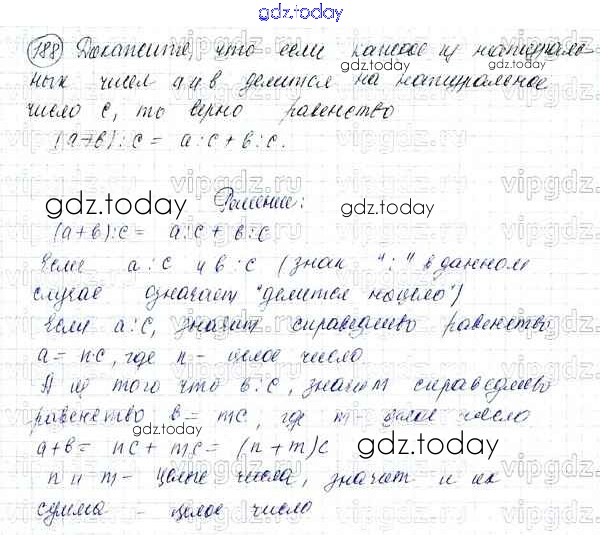 gdz.today
188 Докажите, что если каждое из натураль-
ных чисел a и b делится на натуральное
число c, то верно равенство
(a+b):c = a:c + b:c.
Решение:
(a+b):c = a:c + b:c
Если a:c и b:c (знак ":" в данном
случае означает "делится нацело")
Если a:c, значит справедливо равенство
a = nc, где n - целое число
А из того что b:c, значит справедливо
равенство b = mc, где m - целое число
a+b = nc + mc = (n+m)c
n и m - целые числа, значит и их
сумма - целое число
gdz.today
gdz.today
gdz.today
gdz.today
gdz.today
gdz.today
gdz.today
vipgdz.today